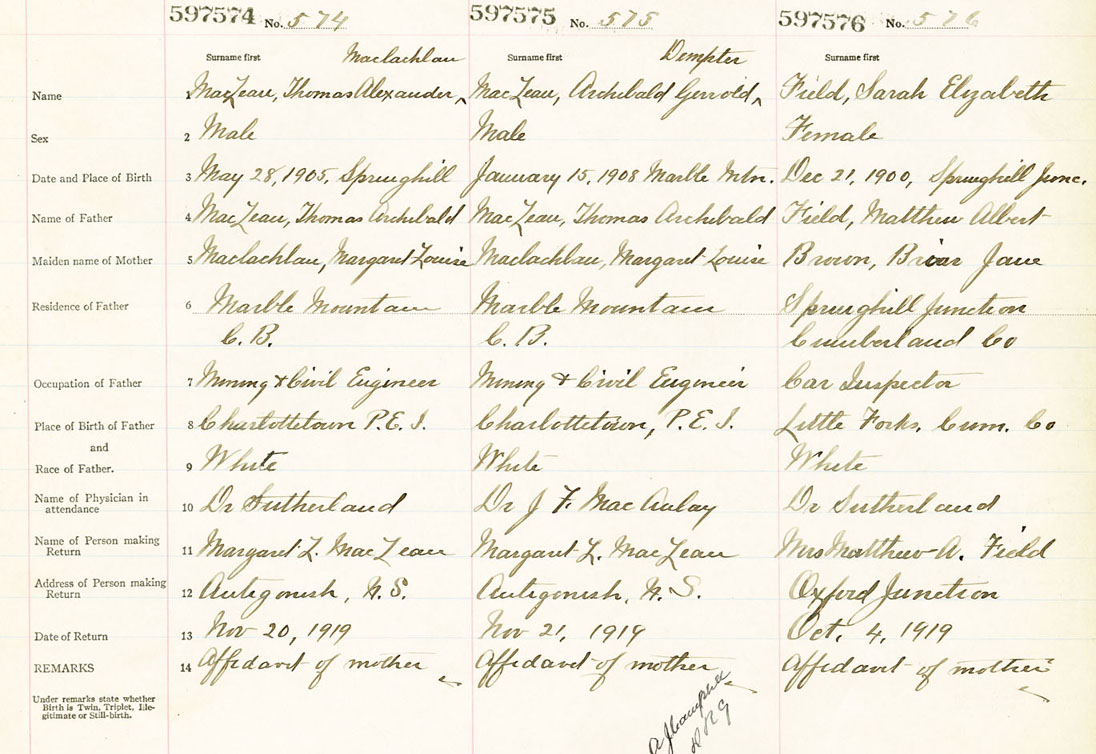 597574 No. 574 597575 No. 575 597576 No. 576
Surname first Maclachlan Surname first Dempster Surname first
Name 1 MacLean, Thomas Alexander ^ MacLean, Archibald Gerrold, ^ Field, Sarah Elizabeth
Sex 2 Male Male Female
Date and Place of Birth 3 May 28, 1905, Springhill January 15, 1908 Marble Mtn. Dec 21, 1900, Springhill Junc.
Name of Father 4 MacLean, Thomas Archibald MacLean, Thomas Archibald Field, Matthew Albert
Maiden name of Mother 5 Maclachlan, Margaret Louise Maclachlan, Margaret Louise Brown, Jane
Residence of Father 6 Marble Mountain Marble Mountain Springhill Junction
C. B. C. B. Cumberland Co
Occupation of Father 7 Mining & Civil Engineer Mining & Civil Engineer Car Inspector
Place of Birth of Father 8 Charlottetown P.E.I. Charlottetown, P.E.I. Little Forks, Cum. Co
and
Race of Father. 9 White White White
Name of Physician in
attendance 10 Dr Sutherland Dr J F. MacAulay Dr Sutherland
Name of Person making
Return 11 Margaret L. MacLean Margaret L. MacLean Mrs Matthew A. Field
Address of Person making
Return 12 Antigonish, N.S. Antigonish, N.S. Oxford Junction
Date of Return 13 Nov 20, 1919 Nov 21, 1919 Oct. 4, 1919
REMARKS 14 Affidavit of mother Affidavit of mother Affidavit of mother
Under remarks state whether
Birth is Twin, Triplet, Ille-
gitimate or Still-birth.
DRG